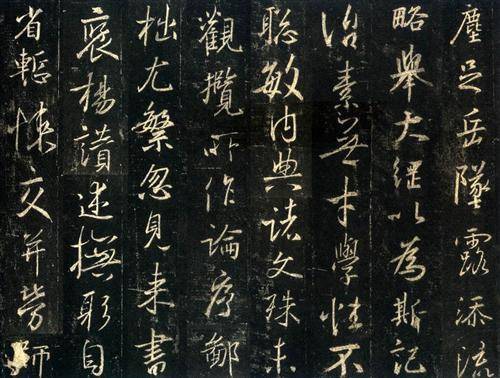 塵足岳墜露添流
略舉大綱以為斯記
治素無才學性不
聡敏内典諸文殊未
觀攬所作論序鄙
拙尤繁忽見来書
褒揚讃述撫躬自
省慙悚交并勞師